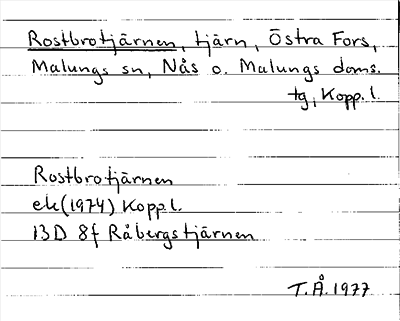 Rostbrotjärnen, tjärn, Östra Fors,
Malungs sn, Nås o. Malungs doms.
tg, Kopp. l.
Rostbrotjärnen
ek (1974) Kopp l.
13D 8f Råbergstjärnen
T.Å. 1977